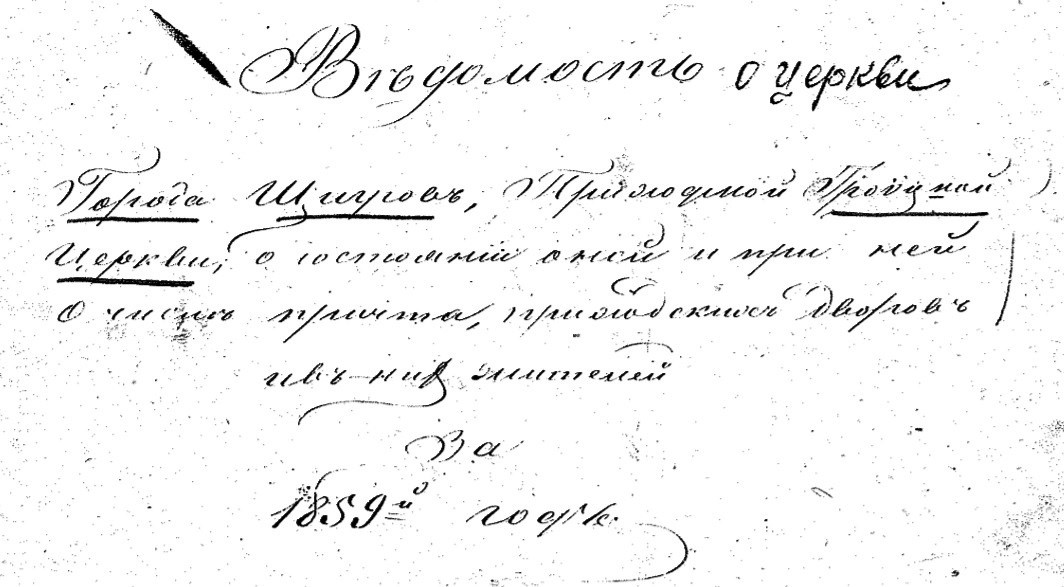 Вѣдомость о церкви
Города Щигровъ, Приходской Троицкой
Церкви, о состоянии оной и при ней
О числѣ причта, приходскихъ дворовъ
и въ них жителей
За
1859й годъ.